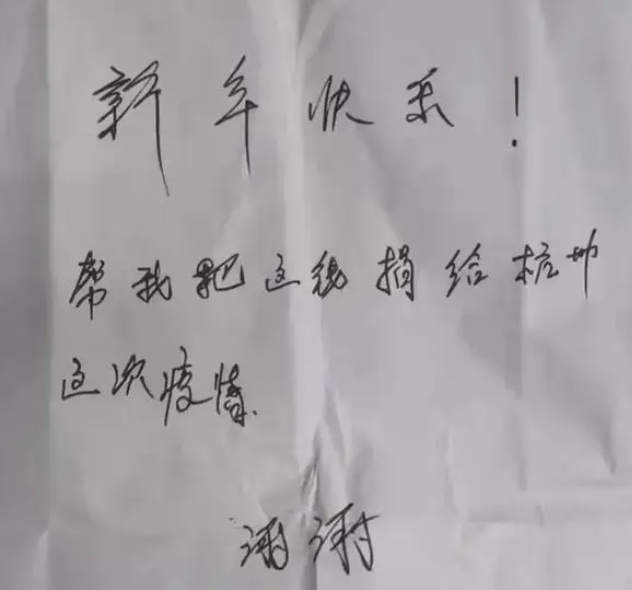 新年快乐!
帮我把这钱捐给杭州
这次疫情.
谢谢